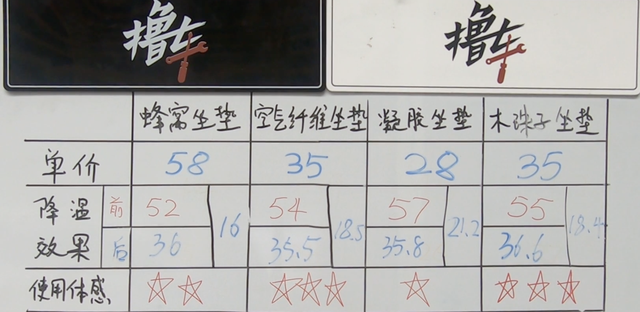 撸车 撸车
蜂窝坐垫 空气纤维坐垫 凝胶坐垫 木珠子坐垫
单价 58 35 28 35
降温 前 52 54 57 55
16 18.5 21.2 18.4
效果 后 36 35.5 35.8 36.6
使用体感 ☆☆ ☆☆☆ ☆ ☆☆☆